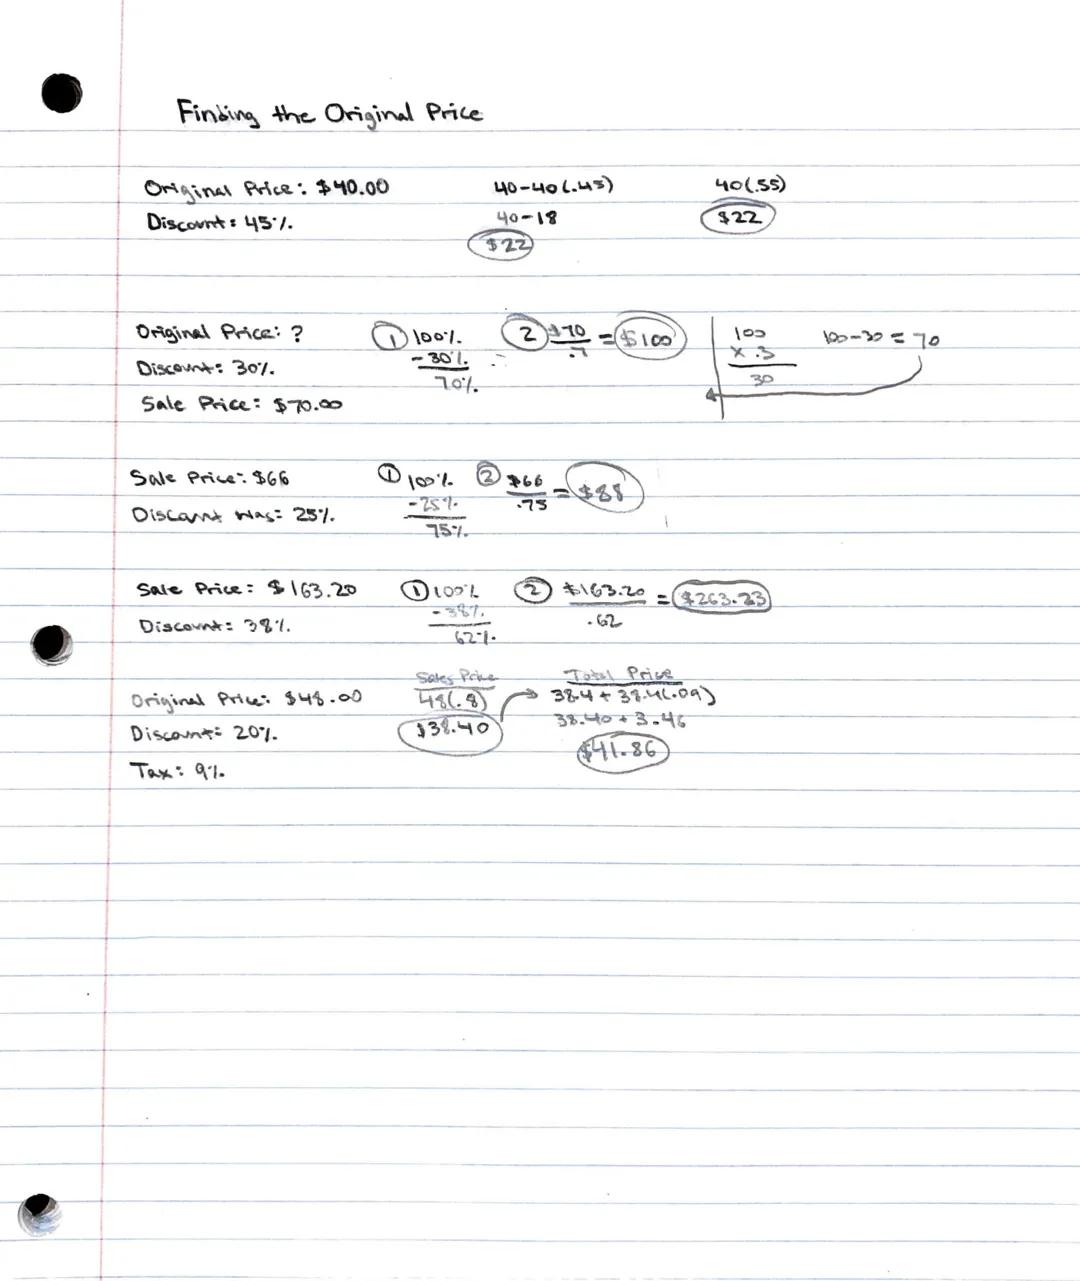 Finding the Original Price
Original Price: $40.00 40-40(.45) 40(.55)
Discount: 45% 40-18 $22
$22
Original Price: ? ① 100% ② $70/.7 = $100 100 100-30 = 70
Discount: 30% -30% x .3
Sale Price: $70.00 70% 30
Sale Price: $66 ① 100% ② $66/.75 = $88
Discount was: 25% -25%
75%
Sale Price: $163.20 ① 100% ② $163.20/.62 = $263.23
Discount: 38% -38%
62%
Sales Price Total Price
Original Price: $48.00 48(.8) 38.4 + 38.4(.09)
Discount: 20% $38.40 38.40 + 3.46
Tax: 9% $41.86